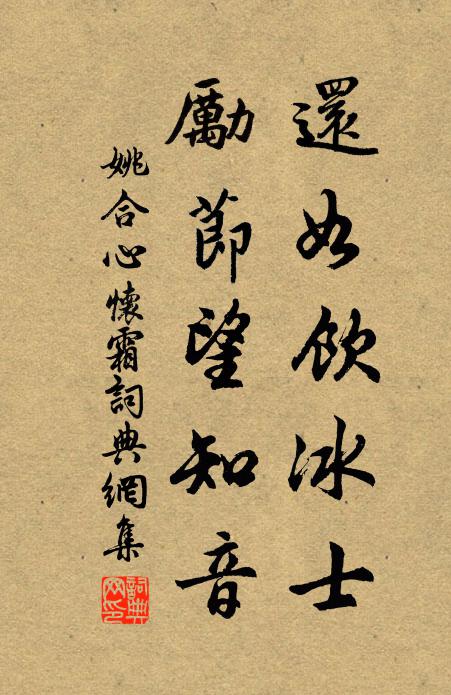 還如飲冰士
勵節望知音
姚合心懷霜詞典網集
詞典網印